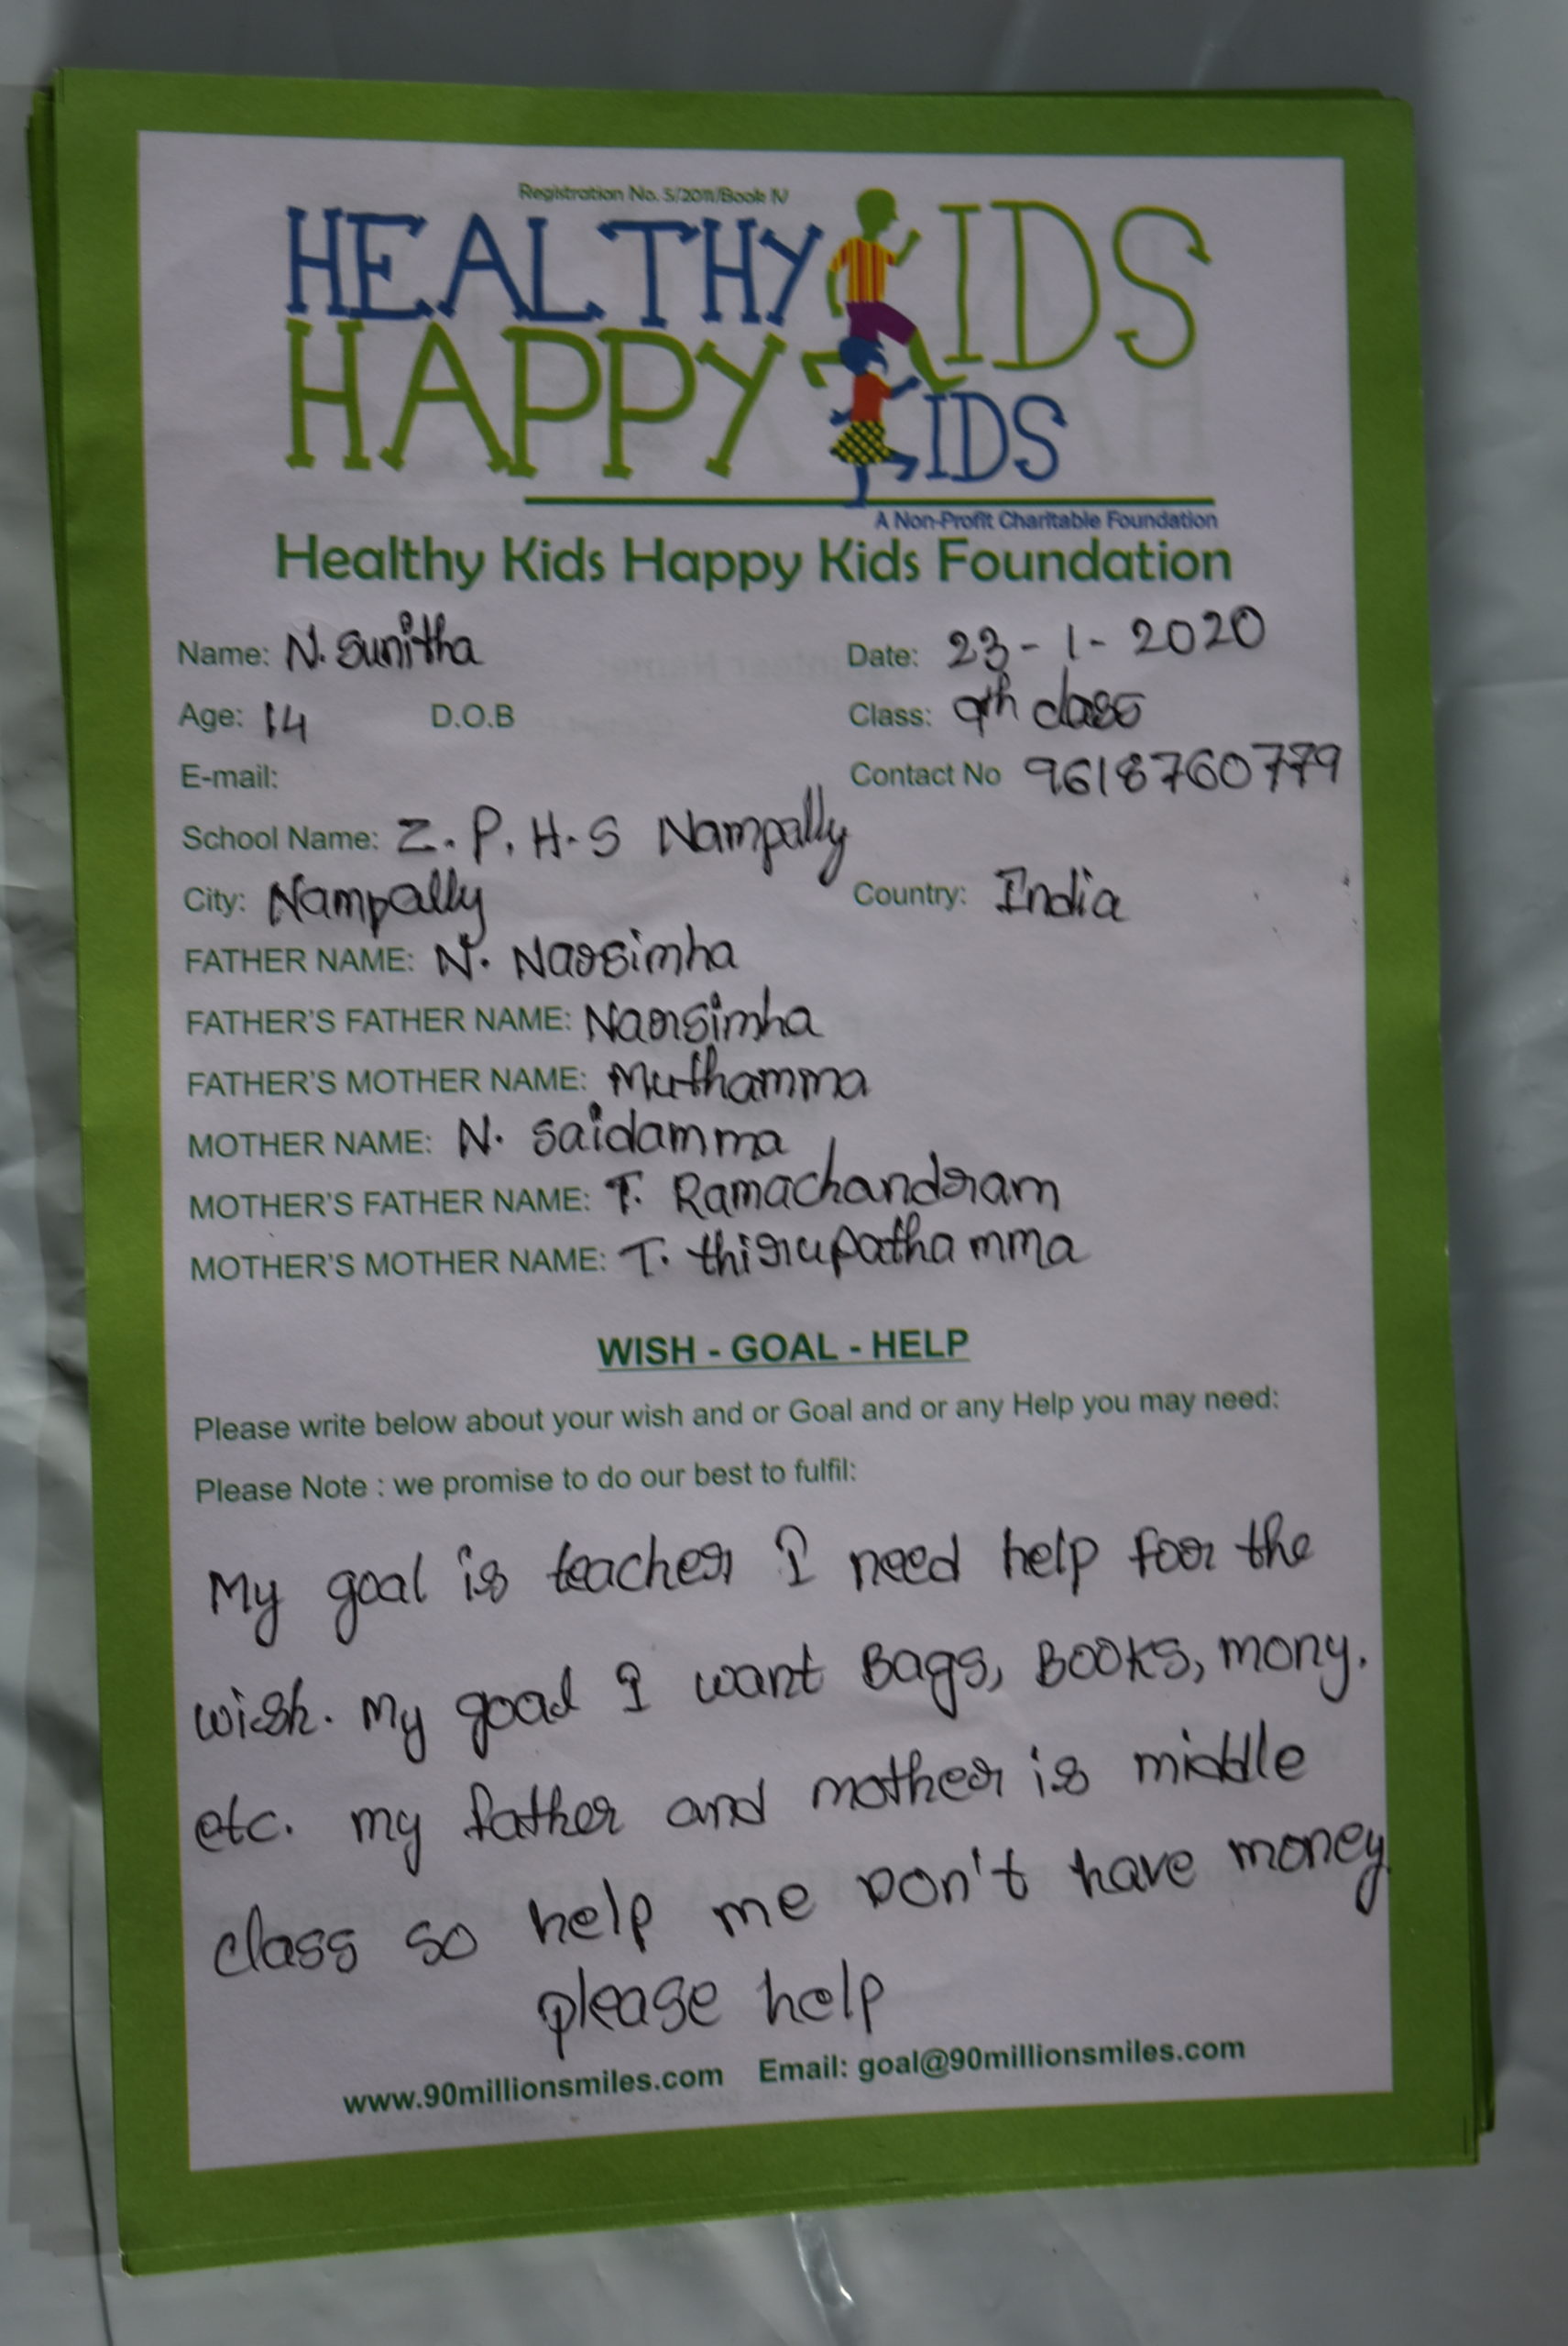 Registration No. 5/2011/Book IV
HEALTHY KIDS
HAPPY KIDS
A Non-Profit Charitable Foundation
Healthy Kids Happy Kids Foundation
Name: N. Sunitha Date: 23-1-2020
Age: 14 D.O.B Class: 9th class
E-mail: Contact No 9618760779
School Name: Z. P. H. S Nampally
City: Nampally Country: India
FATHER NAME: N. Narsimha
FATHER'S FATHER NAME: Narsimha
FATHER'S MOTHER NAME: Muthamma
MOTHER NAME: N. Saidamma
MOTHER'S FATHER NAME: T. Ramachandram
MOTHER'S MOTHER NAME: T. thirupathamma
WISH - GOAL - HELP
Please write below about your wish and or Goal and or any Help you may need:
Please Note : we promise to do our best to fulfil:
My goal is teacher I need help foor the
wish. My goal I want Bags, BOOKS, mony.
etc. my father and mother is middle
class so help me Don't have money.
please help
www.90millionsmiles.com Email: goal@90millionsmiles.com